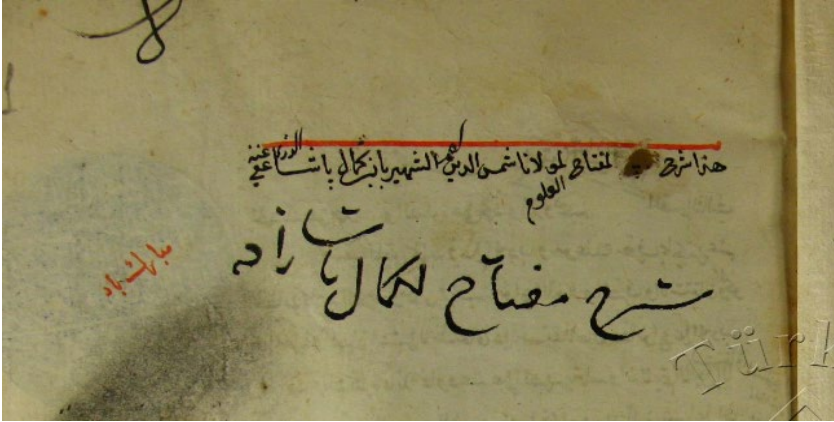 هذا شرح لمفتاح العلوم لمولانا شمس الدين احمد الشهير بابن كمال پاشا الوزير عفي عنه
شرح مفتاح لكمال پاشا زاده
مبارك باد
Türk